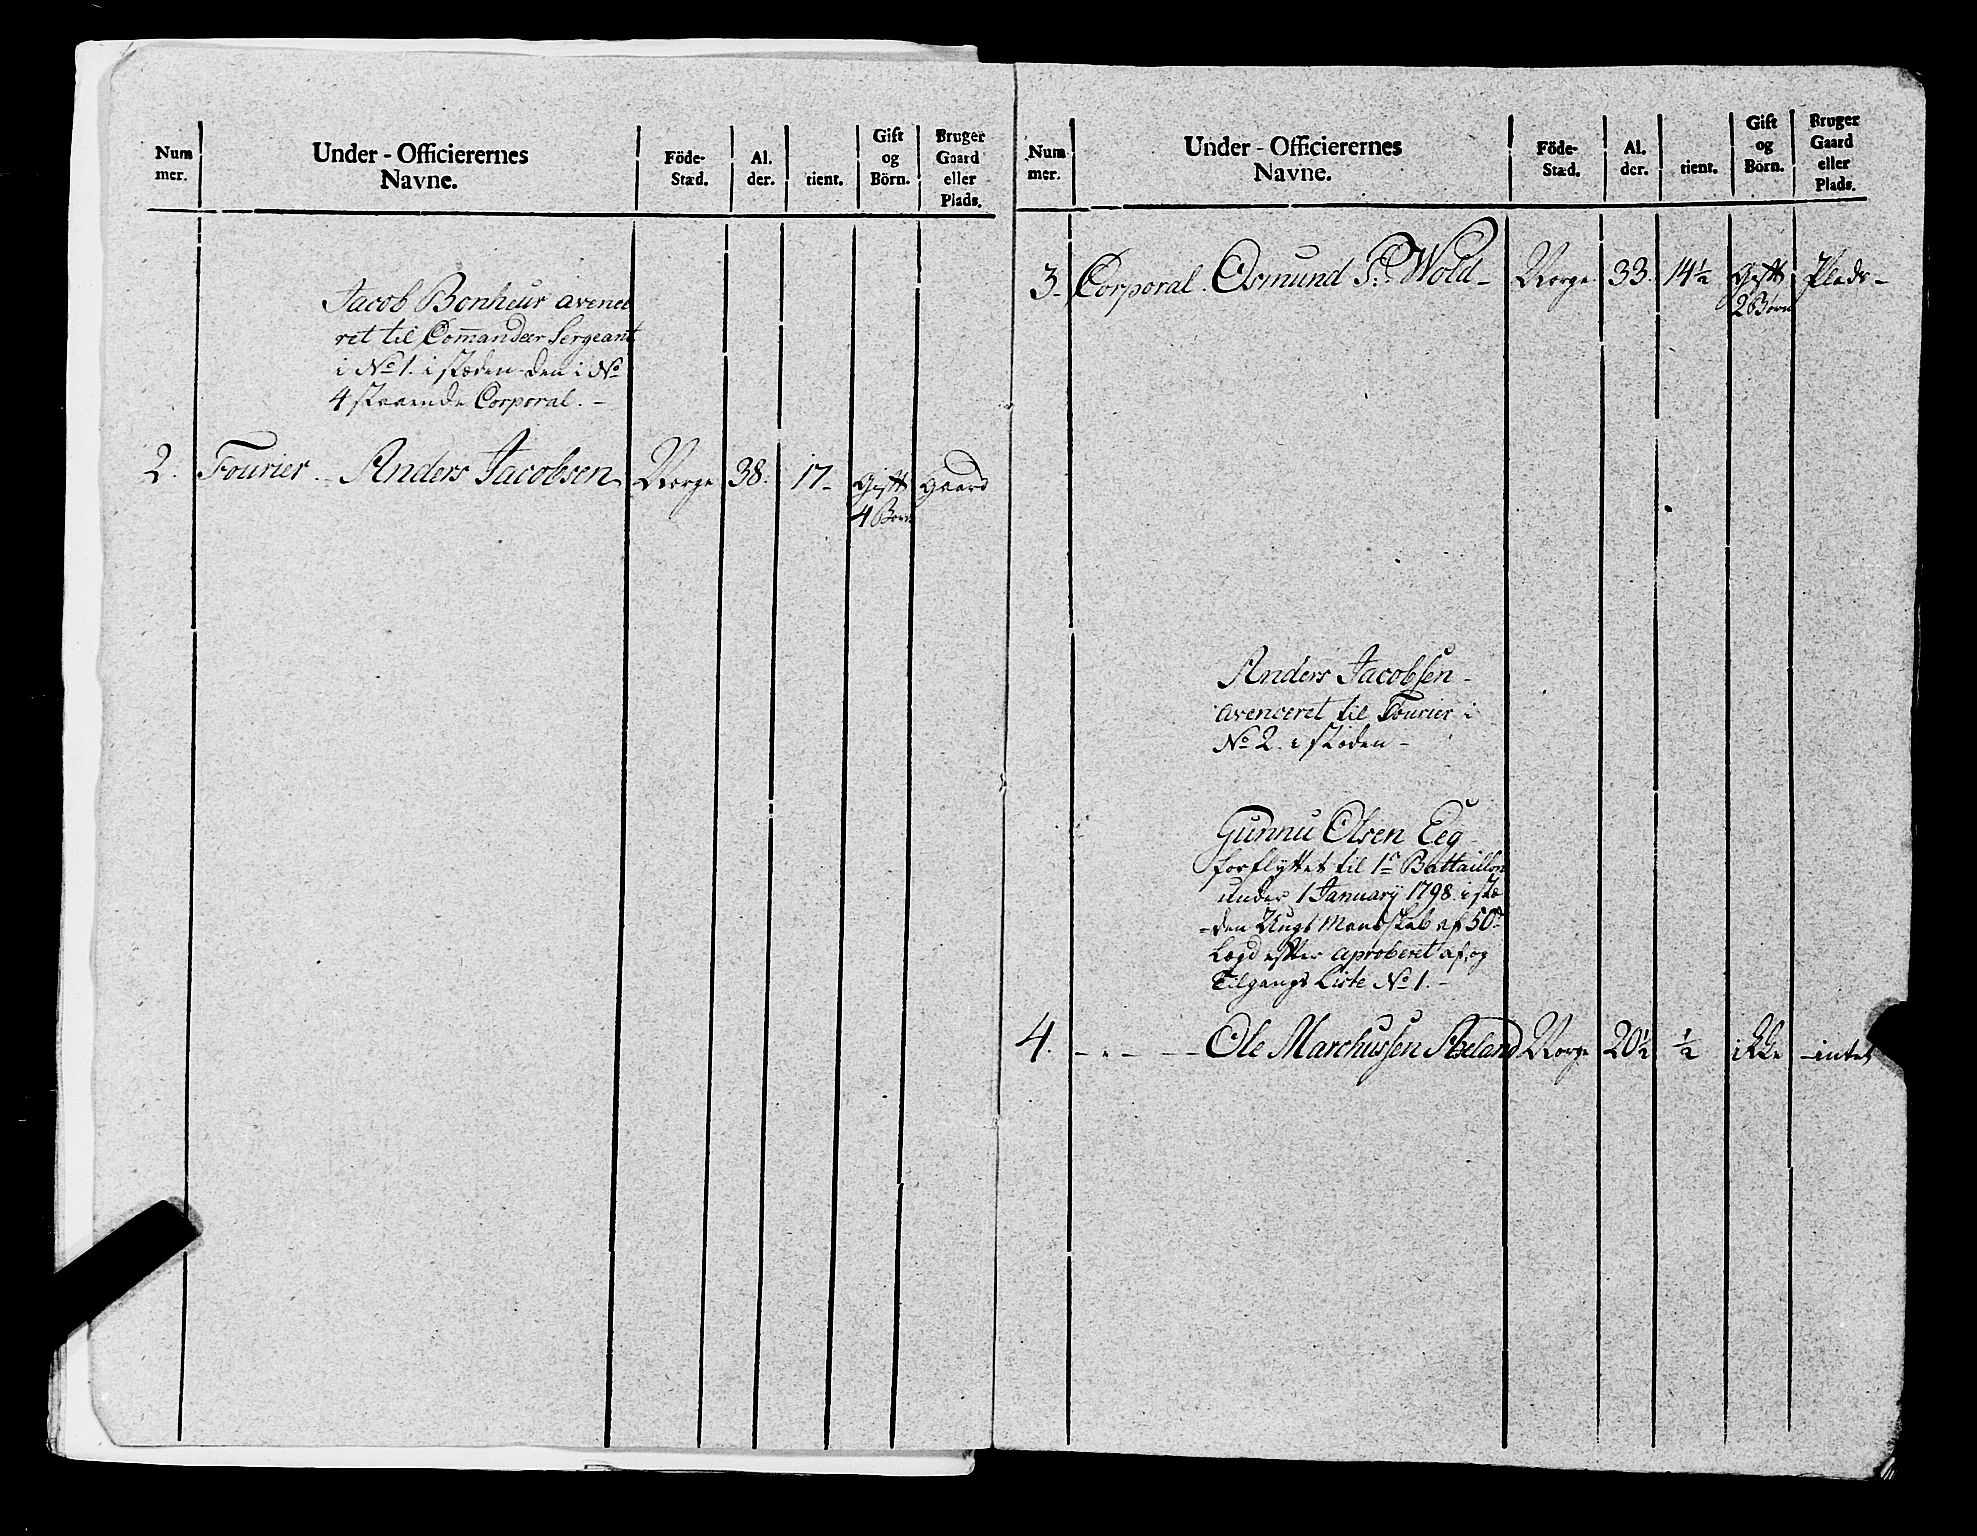 Num
mer.
Under-Officierernes
Navne.
Föde-
Stæd.
Al.
der.
tient.
Gift
og
Börn.
Bruger
Gaard
eller
Plads.
Jacob Bonheur avence
ret til Comandeer Sergeant
i No 1. i stæden den i No
4 staaende Corporal. -
2. Fourier - Anders Jacobsen Norge 38. 17- Gift Gaard
4 Børn
Num
mer.
Under-Officierernes
Navne.
Föde-
Stæd.
Al.
der.
tient.
Gift
og
Börn.
Bruger
Gaard
eller
Plads.
3. Corporal. Osmund P. Wold - Norge 33. 14½ Gift Plads-
2 Børn
Anders Jacobsen -
avenceret til Fourier i
No 2. i støden -
Gunnu Olsen Eeg
forflyttet til 1r Battaillon
under 1 January 1798. i stæ
-den Ungt Mandskab af 50de
Lægd efter aproberet af, og
Tilgangs Liste No 1. -
4. - - - Ole Marchussen Norge 20½ ½ ikke -intet